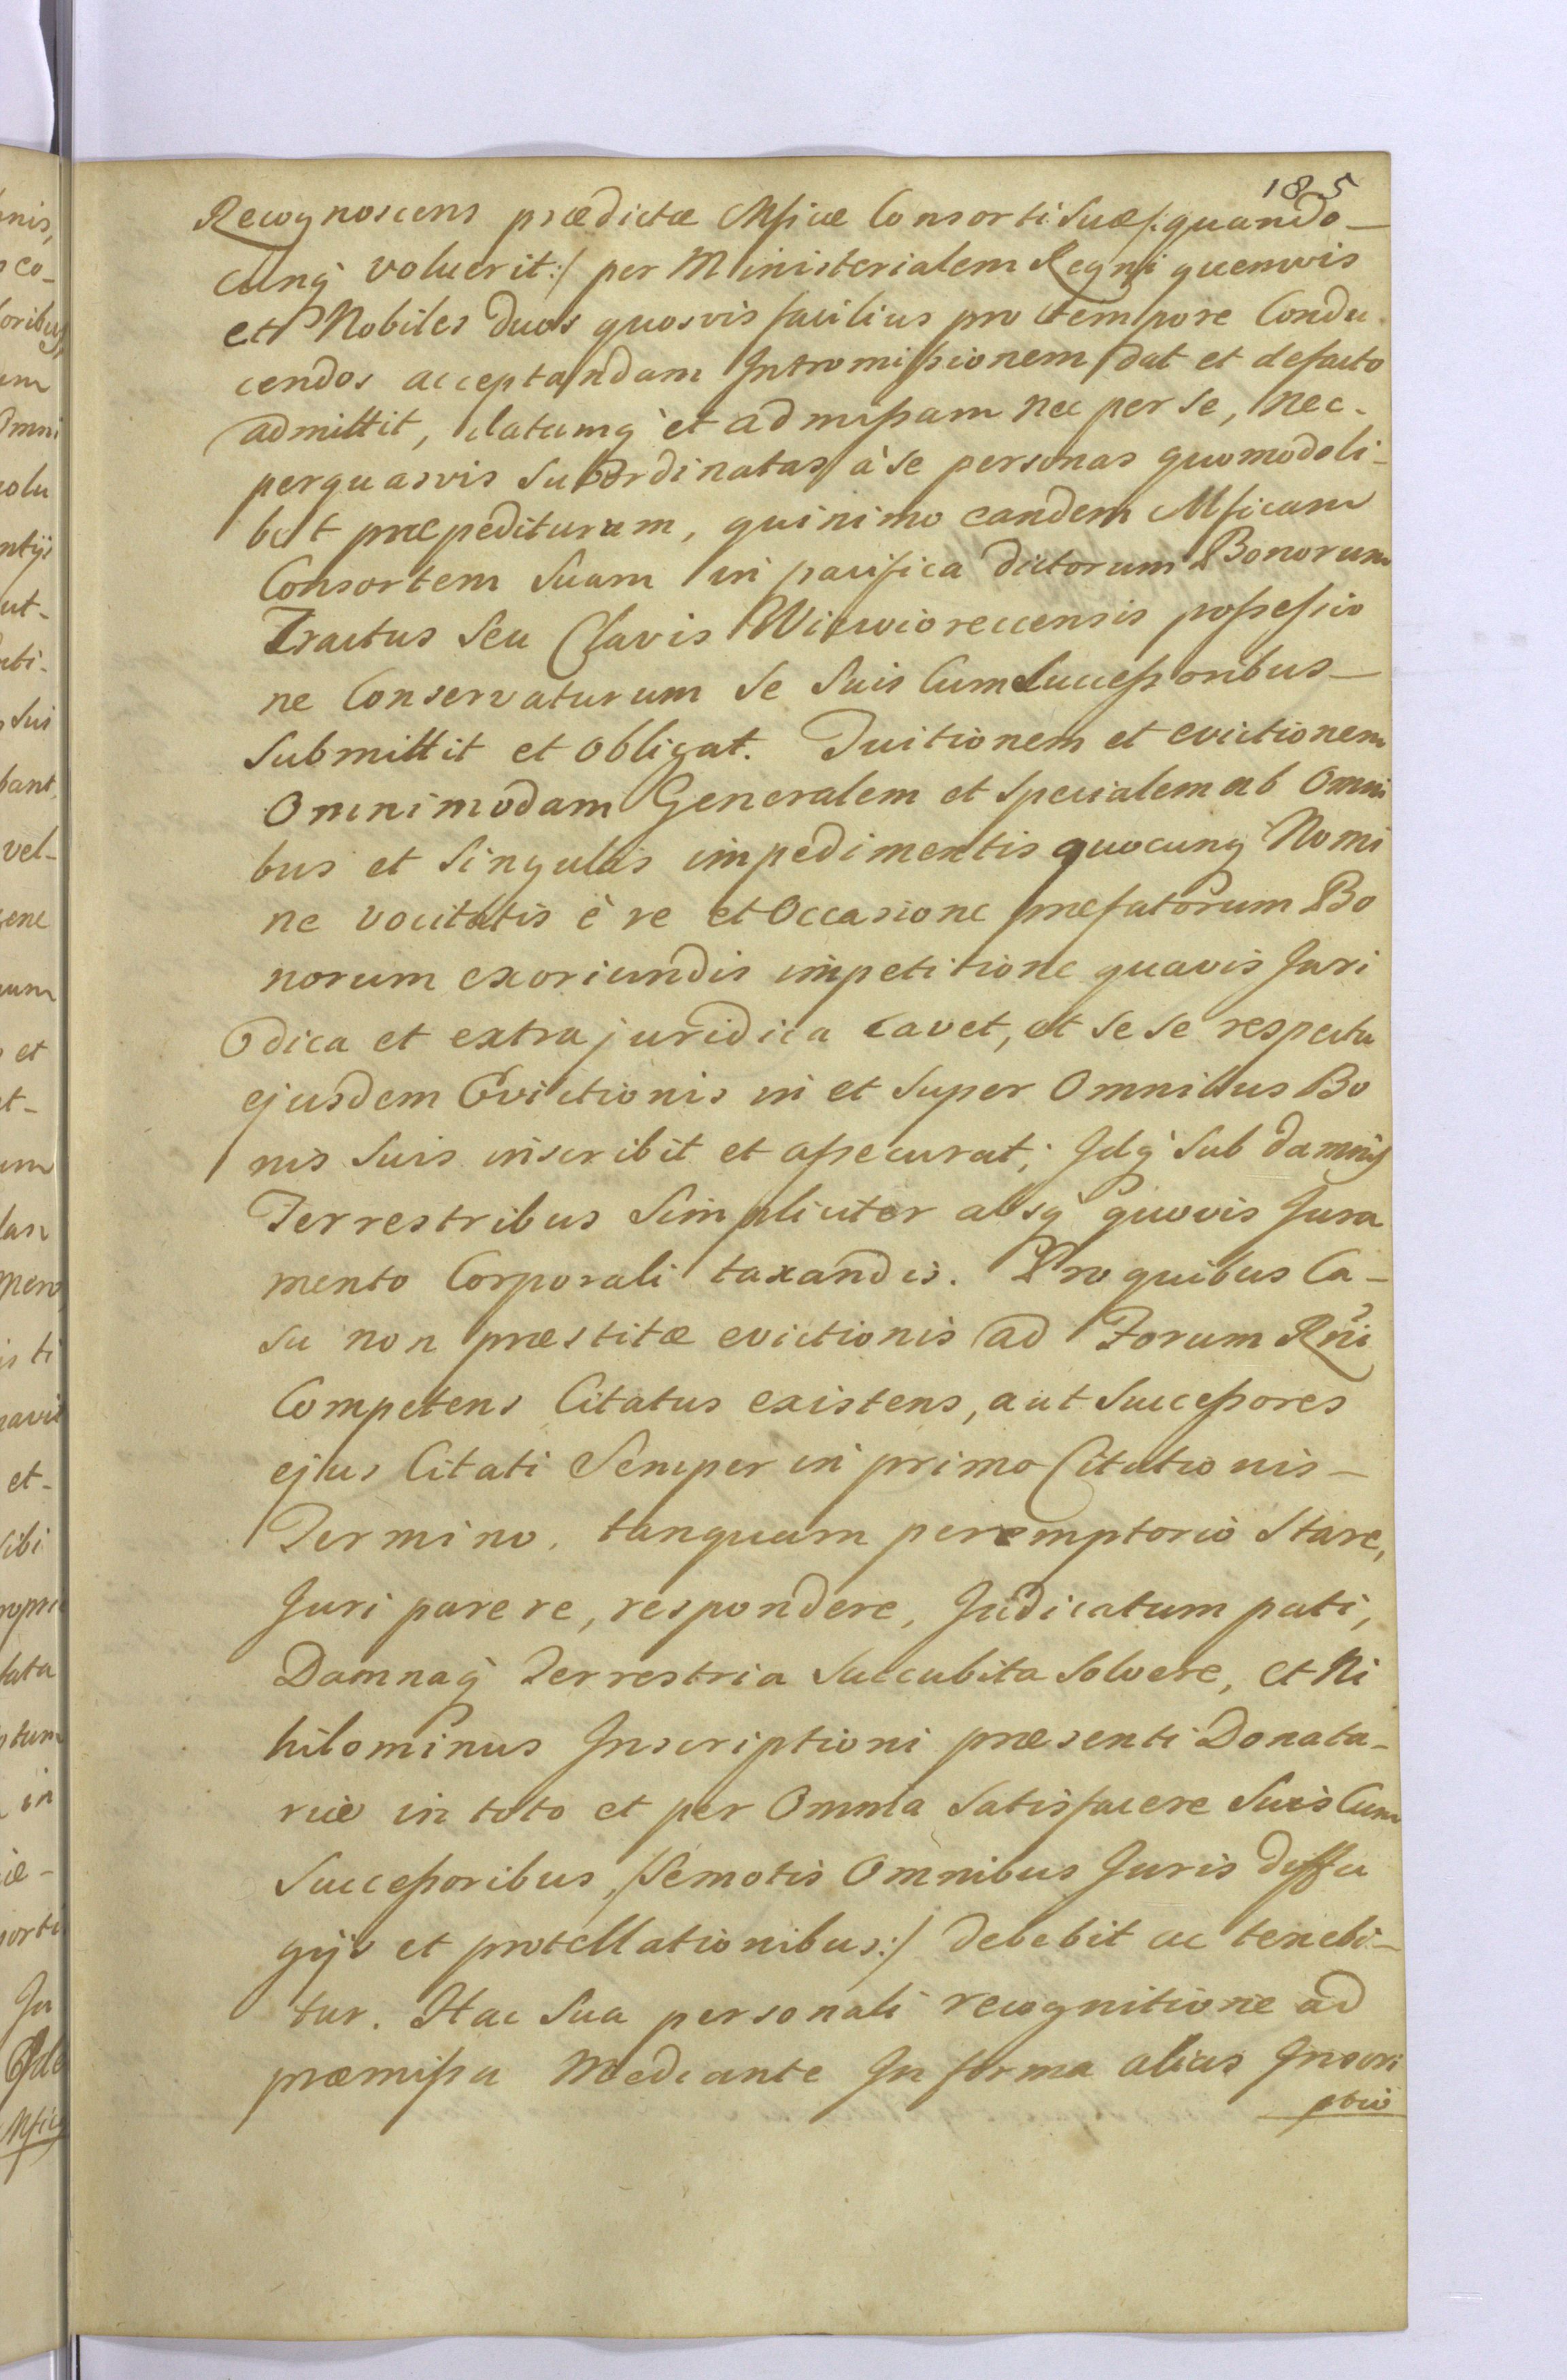 185
Recognoscens prædictæ Mficæ Consorti Suæ /: quando_
cunq̀ voluerit :/ per Ministerialem Regni quemvis
et Nobiles duos quosvis facilius pro tempore Condu
cendos acceptandam Intromissionem dat et defacto
admittit, datamq̀ et admissam nec per se, nec_
perquasvis Subordinatas à se personas quomodoli_
bet præpediturum, quinimo eandem Mficam
Consortem Suam in pacifica dictorum Bonorum
Tractus Seu Clavis Wiewioreccensis possessio
ne Conservaturum se Suis Cum Successoribus_
Submittit et obligat. Tuitionem et evictionem
Omnimodam Generalem et Specialem ab Omni
bus et Singulis impedimentis quocunq̀ Nomi
ne vocitatis è re et Occasione præfatorum Bo
norum exoriundis impetitione quavis Juri
dica et extrajuridica cavet, et se se respectu
ejusdem Evictionis in et Super Omnibus Bo
nis Suis inscribit et assecurat; Idq̀ Sub damnis
Terrestribus Simpliciter absq̀ quovis Jura
mento Corporali taxandis. Pro quibus Ca_
su non præstitæ evictionis ad Forum Rñi
Competens Citatus existens, aut Successores
ejus Citati Semper in primo Citationis_
Termino, tanquam peremptorio Stare,
Juri parere, respondere, Judicatum pati,
Damnaq̀ Terrestria Succubita Solvere, et Ni
hilominus Inscriptioni præsenti Donata_
riæ in toto et per Omnia Satisfacere Suis Cum
Successoribus /: Semotis Omnibus Juris diffu
gijs et protellationibus :/ debebit ac tenebi_
tur. Hac Sua personali recognitione ad
præmissa Mediante In forma alias Inscri
ptio